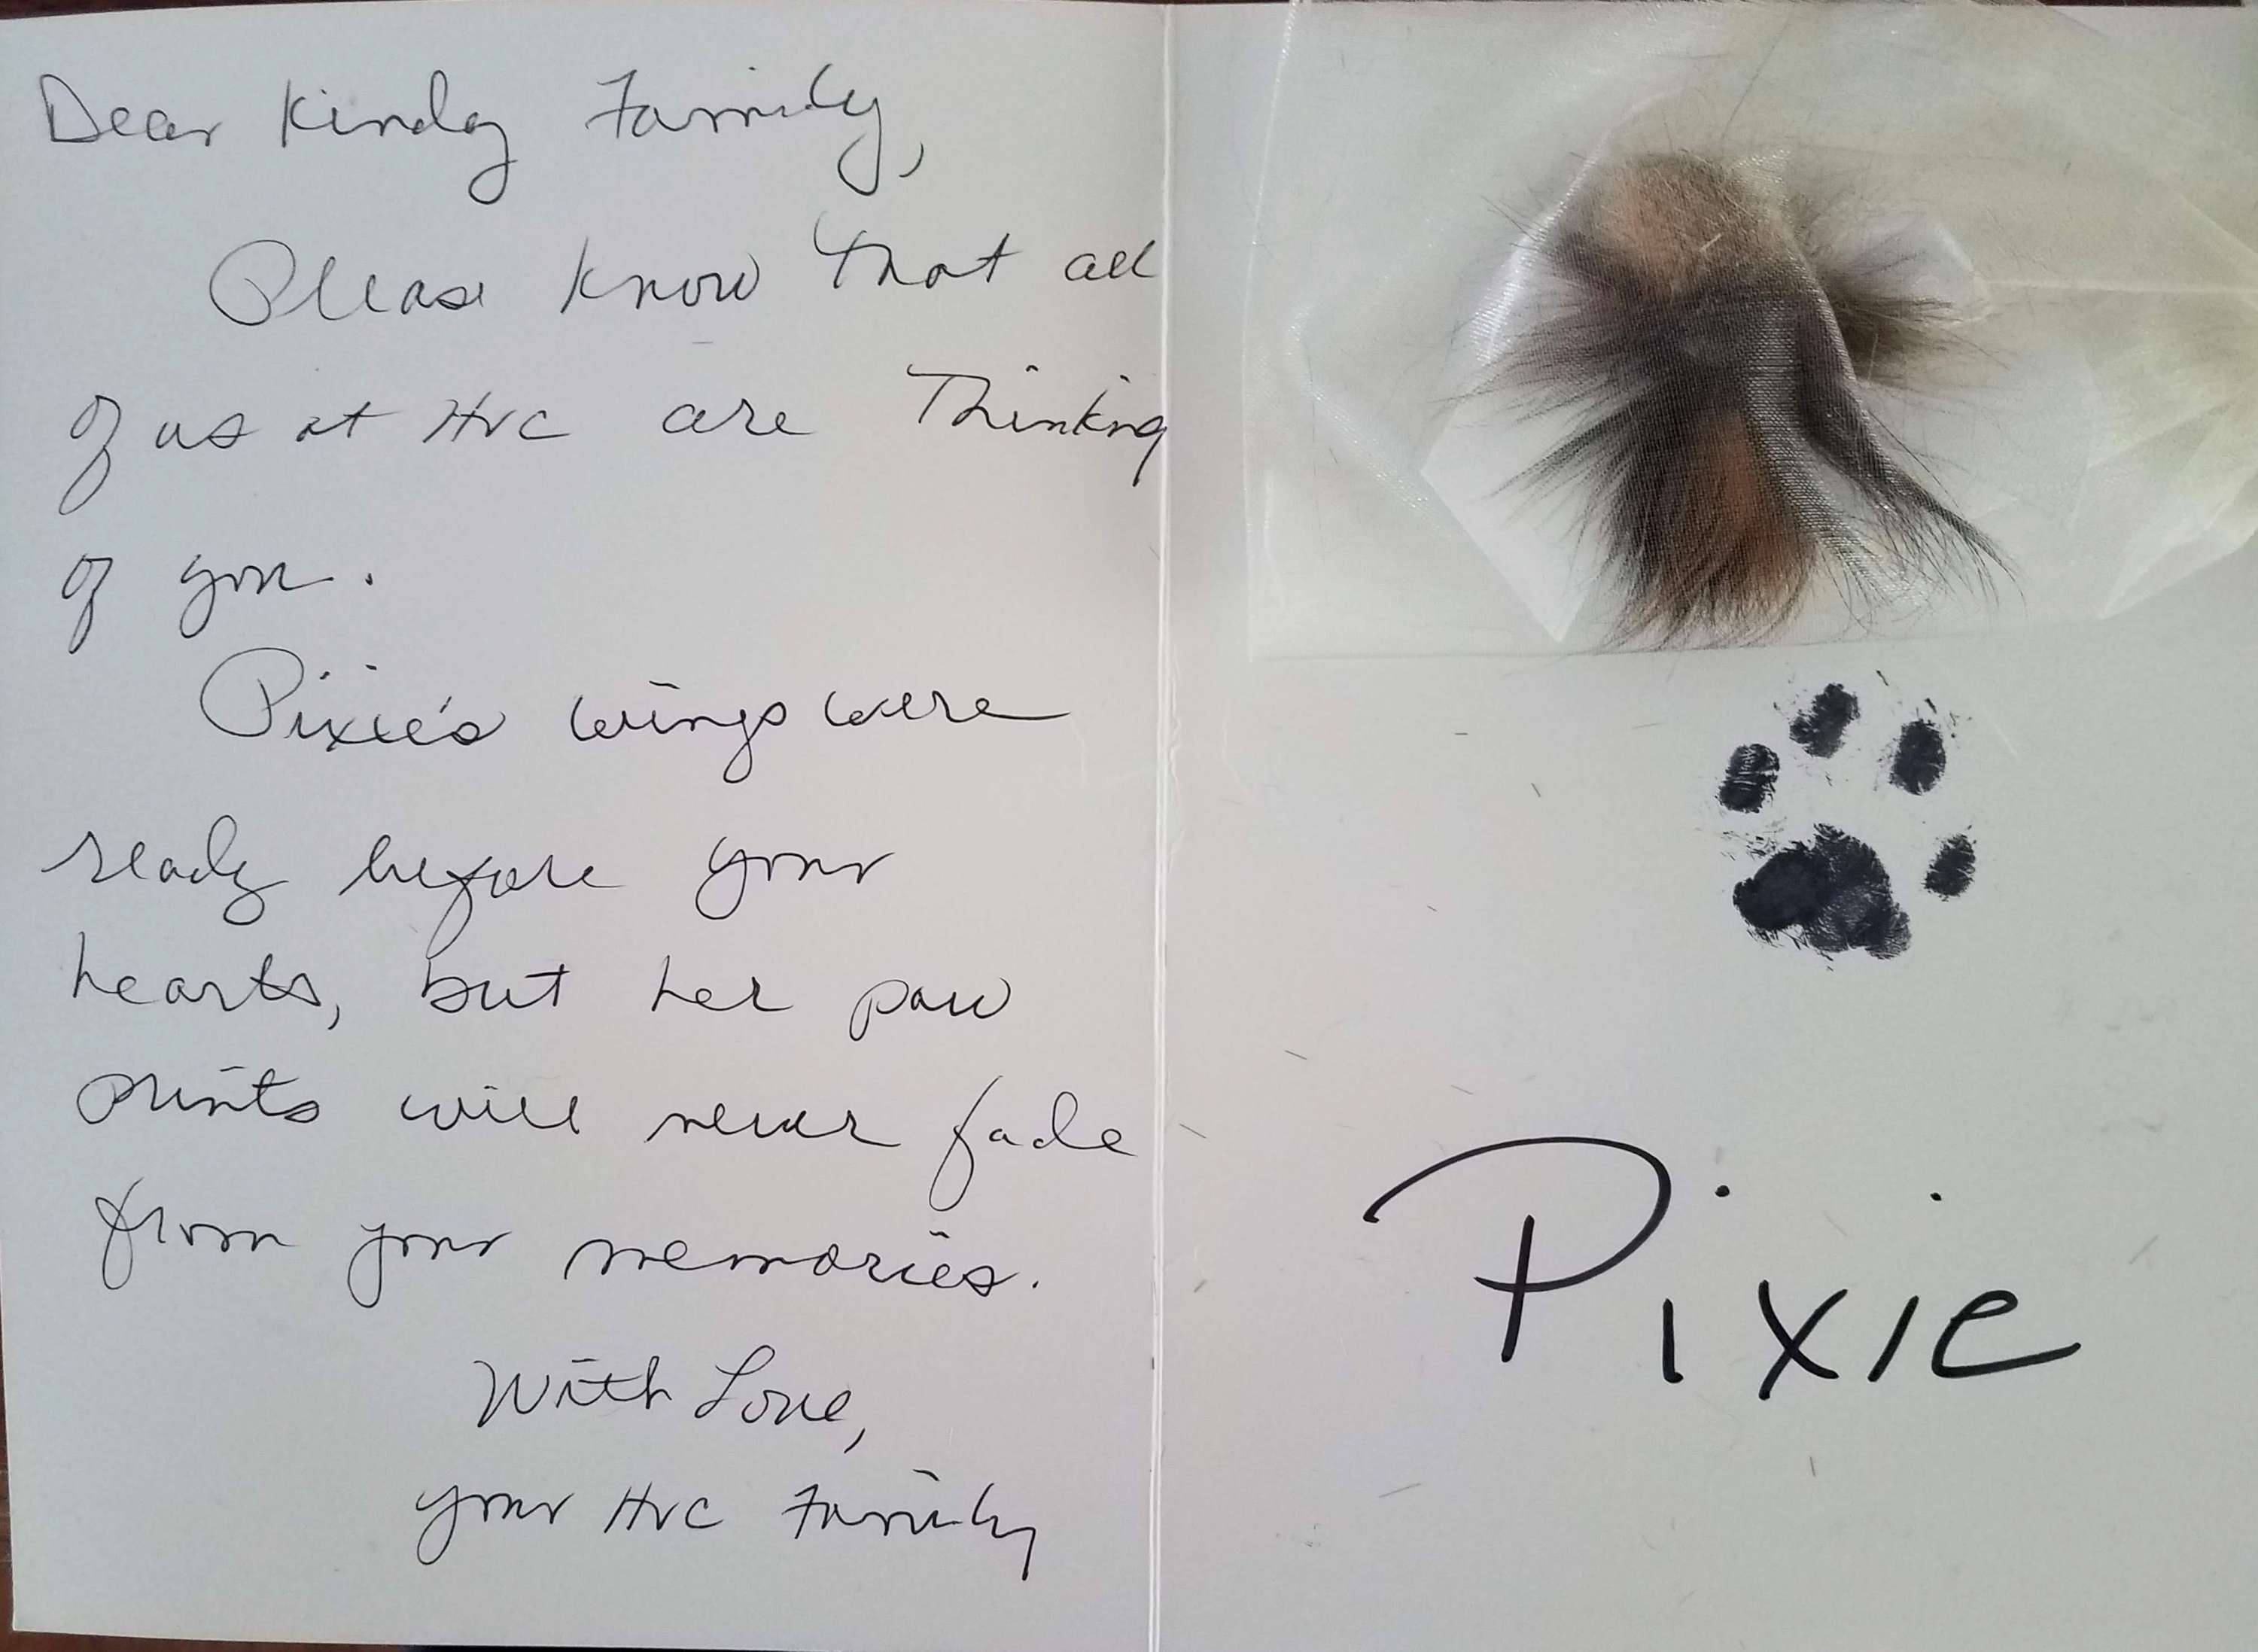 Dear Kindy Family,
Please know that all
of us at HVC are Thinking
of you.
Pixie's wings were
ready before your
hearts, but her paw
prints will never fade
from your memories.
With Love,
your HVC Family
Pixie